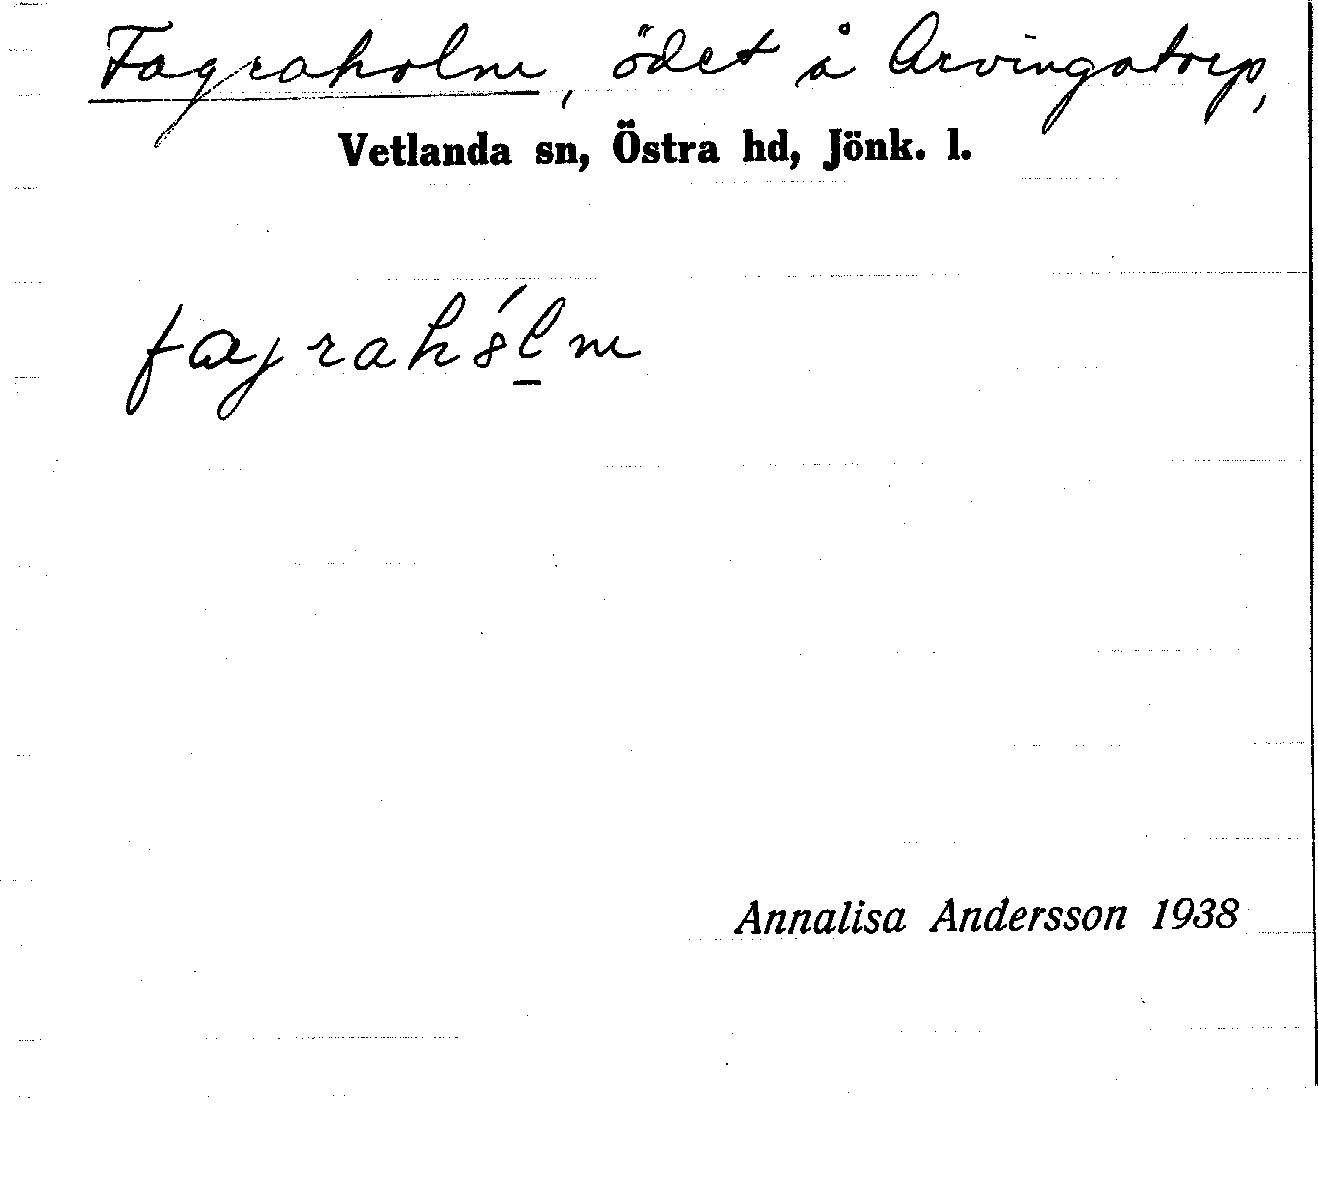 Fagraholm, ödet å Arvingatorp,
Vetlanda sn, Östra hd, Jönk. l.
fagrahól̲m
Annalisa Andersson 1938